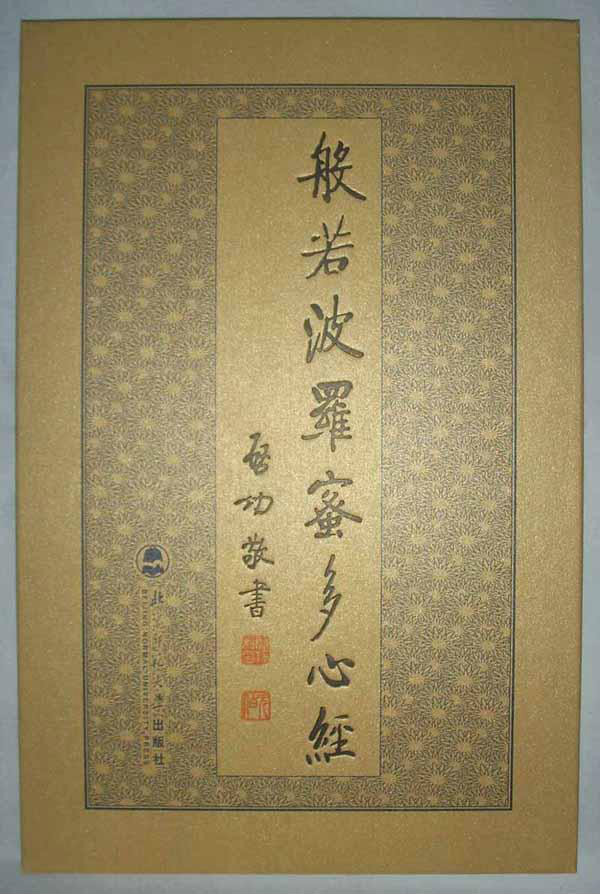 般若波羅蜜多心經
啓功敬書
北京师范大学出版社
BEIJING NORMAL UNIVERSITY PRESS